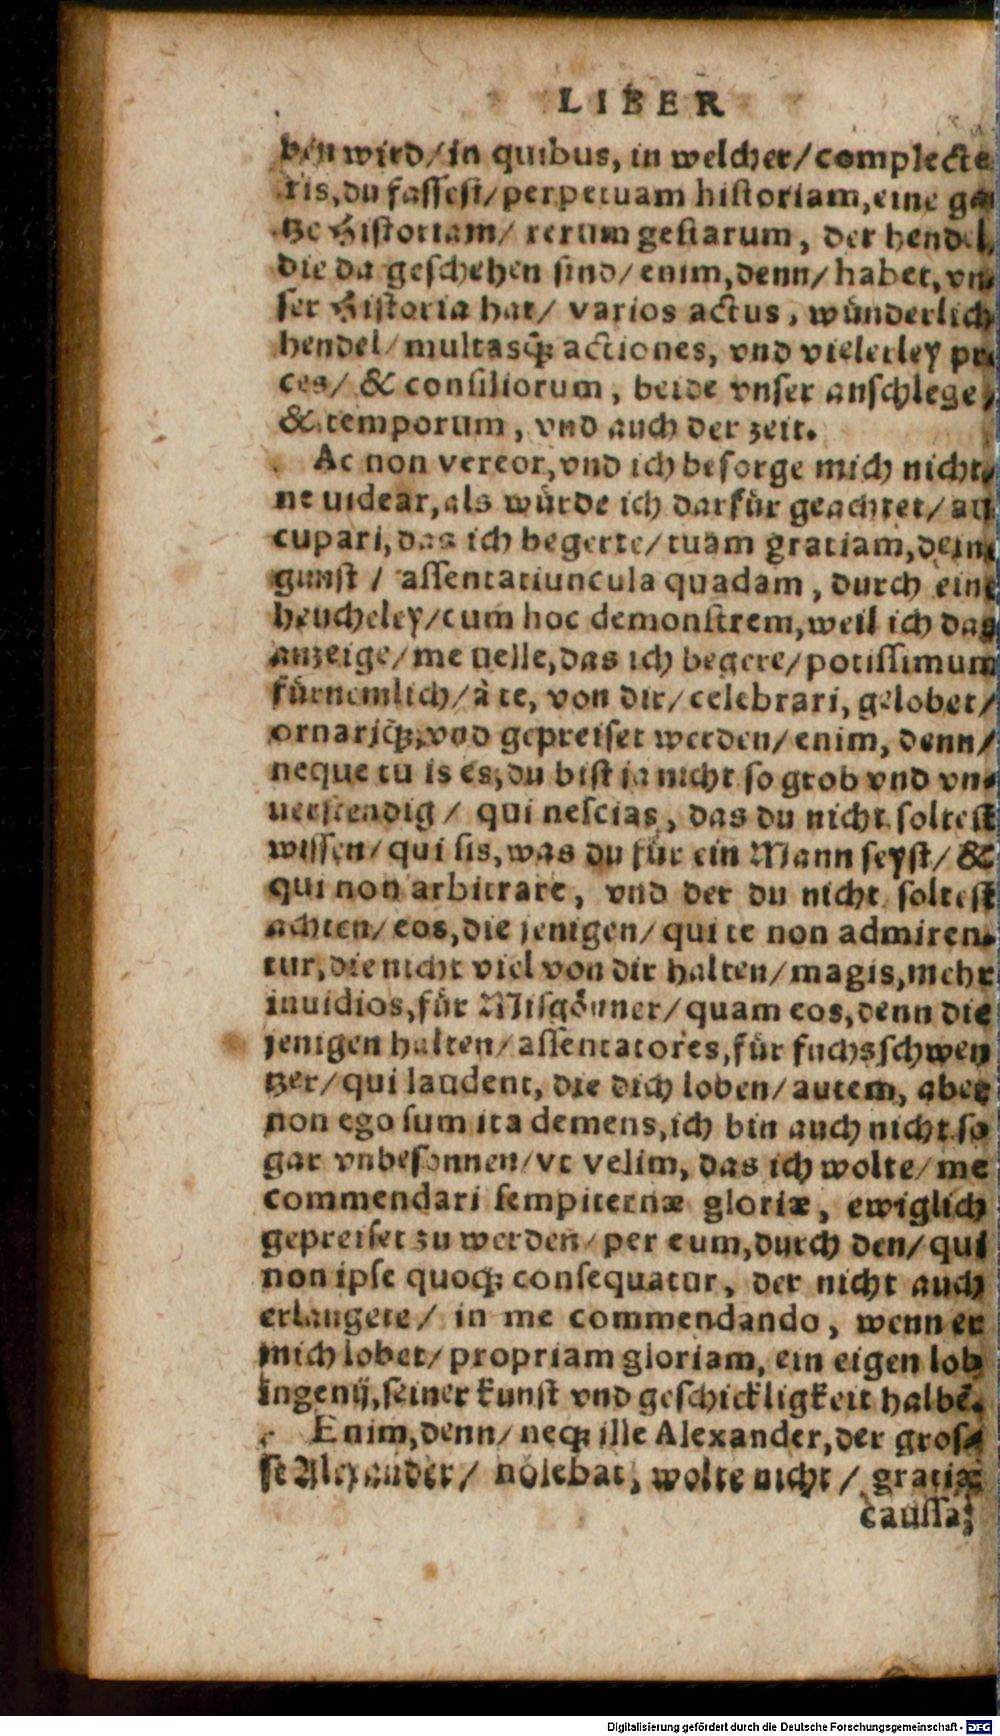 LIBER
ben wird/in quibus, in welcher/complecte
ris, du fassest/perpetuam historiam, eine gan
tze Historiam/ rerum gestarum, der hendel,
die da geschehen sind/enim, denn/habet, vn⸗
ser Historia hat/ varios actus, wünderlich
hendel/multasq́; actiones, vnd vielerley pro
ces/ & consiliorum, beide vnser anschlege,
& temporum, vnd auch der zeit.
Ac non vereor, vnd ich besorge mich nicht,
ne uidear, als würde ich darfür geachtet/ au
cupari, das ich begerte/tuam gratiam, deine
gunst / assentatiuncula quadam, durch eine
heucheley/cum hoc demonstrem, weil ich das
anzeige/me uelle, das ich begere/potissimum
fürnemlich/à te, von dir/celebrari, gelobet/
ornariq́;, vnd gepreiset werden/enim, denn/
neque tu is es, du bist ja nicht so grob vnd vn⸗
uerstendig / qui nescias, das du nicht soltest
wissen/qui sis, was du für ein Mann seyst/ &
qui non arbitrare, vnd der du nicht soltest
achten/eos, die jenigen/qui te non admiren⸗
tur, die nicht viel von dir halten/magis, mehr
inuidios, für Misgönner/quam eos, denn die
jenigen halten/assentatores, für fuchsschwen
tzer/qui laudent, die dich loben/autem, aber
non ego sum ita demens, ich bin auch nicht so
gar vnbesonnen/vt velim, das ich wolte/me
commendari sempiternæ gloriæ, ewiglich
gepreiset zu werden/per eum, durch den/qui
non ipse quoq; consequatur, der nicht auch
erlangete/ in me commendando, wenn er
mich lobet/propriam gloriam, ein eigen lob
ingenij, seiner kunst vnd geschickligkeit halbē.
Enim, denn/neq; ille Alexander, der gros⸗
se Alexander/ nolebat, wolte nicht/ gratiæ
caussa,
Digitalisierung gefördert durch die Deutsche Forschungsgemeinschaft - DFG